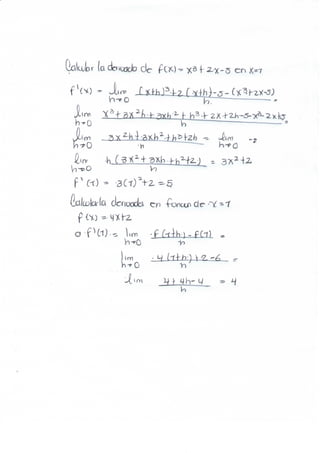 Calcular la derivada de f(x) = x³ + 2x - 5 en x=1
f'(x) = lim h→0 (x+h)³ + 2(x+h) - 5 - (x³+2x-5) / h =
lim h→0 x³ + 3x²h + 3xh² + h³ + 2x + 2h - 5 - x³ - 2x + 5 / h =
lim h→0 3x²h + 3xh² + h³ + 2h / h = lim h→0
lim h→0 h(3x² + 3xh + h² + 2) / h = 3x² + 2
f'(1) = 3(1)² + 2 = 5
Calcular la derivada en función de x=1
f(x) = 4x+2
f'(1) = lim h→0 f(1+h) - f(1) / h =
lim h→0 4(1+h) + 2 - 6 / h =
lim 4 + 4h - 4 / h = 4